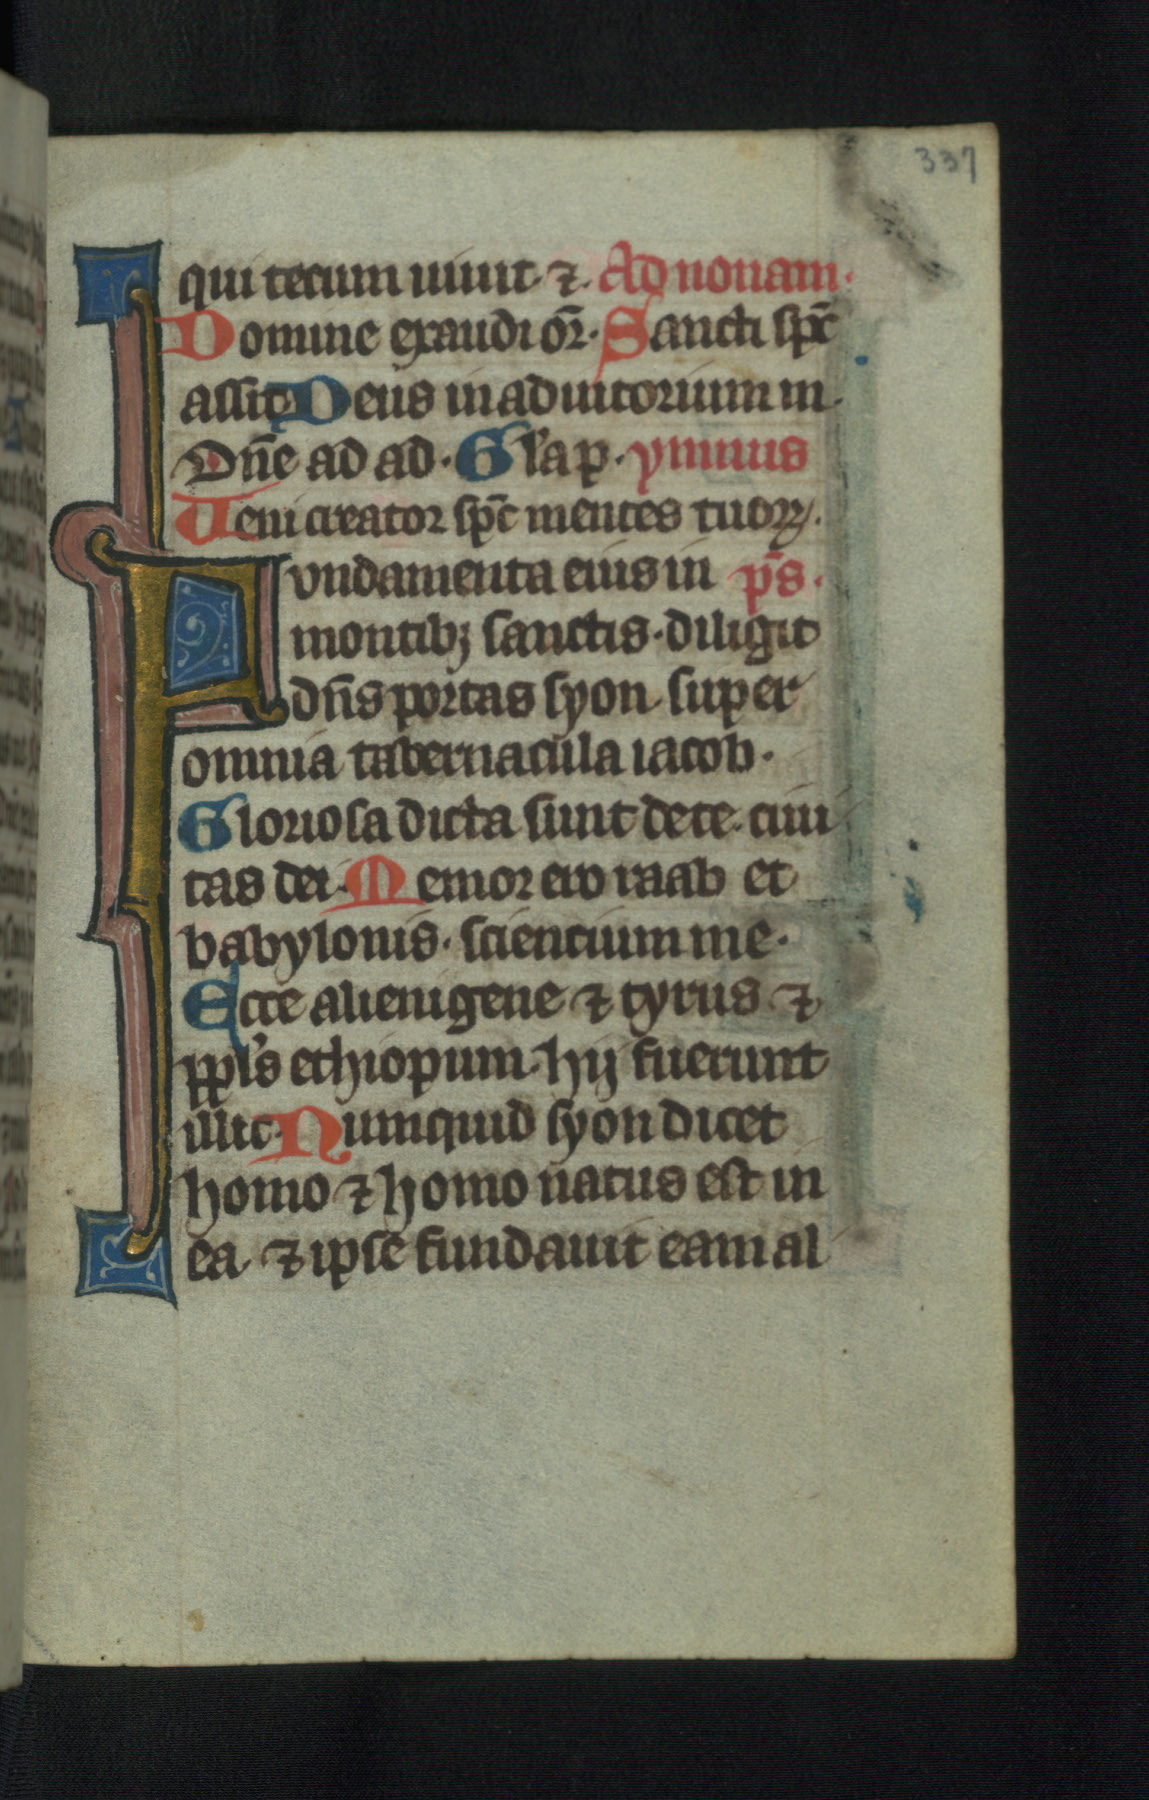 337
qui tecum uiuit ⁊. Ad nonam.
Domine exaudi or̄. Sancti sp̄c
assit. Deus in adiutorium m.
Dn̄e ad ad. Gl'a p. ymnus
Veni creator sp̄c mentes tuoꝝ.
Fvndamenta eius in p̄s.
montibꝫ sanctis. diligit
dn̄s portas syon super
omnia tabernacula iacob.
Gloriosa dicta sunt de te. ciui
tas dei. Memor ero raab et
babylonis. scientium me.
Ecce alienigene ⁊ tyrus ⁊
ppl's ethiopum. hij fuerunt
illic. Numquid syon dicet
homo ⁊ homo natus est in
ea. ⁊ ipse fundauit eam al